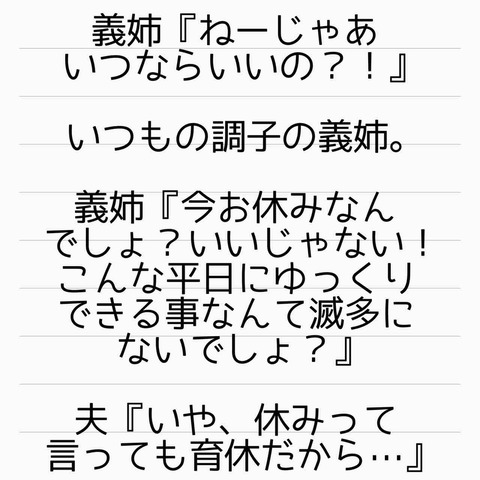 義姉『ねーじゃあ
いつならいいの？！』
いつもの調子の義姉。
義姉『今お休みなん
でしょ？いいじゃない！
こんな平日にゆっくり
できる事なんて滅多に
ないでしょ？』
夫『いや、休みって
言っても育休だから…』